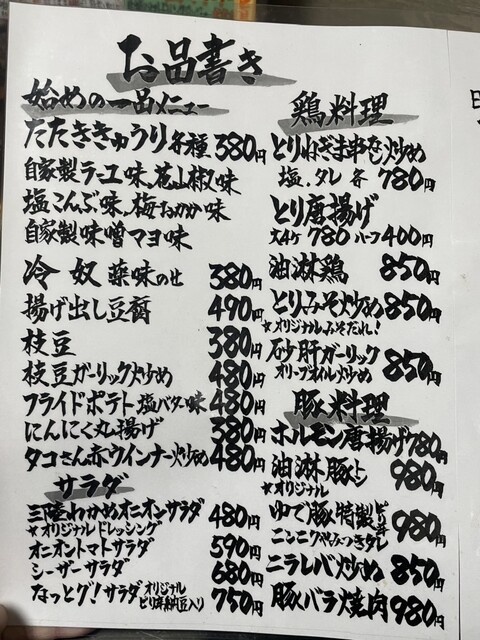 お品書き
始めの一品メニュー
たたききゅうり各種 380円
自家製ラー油味、花山椒味
塩こんぶ味、梅おかか味
自家製味噌マヨ味
冷奴 薬味のせ 380円
揚げ出し豆腐 490円
枝豆 380円
枝豆ガーリック炒め 480円
フライドポテト 塩バター味 480円
にんにく丸揚げ 380円
タコさん赤ウインナー炒め 480円
サラダ
三陸わかめオニオンサラダ 480円
★オリジナルドレッシング
オニオントマトサラダ 590円
シーザーサラダ 680円
なっとグ!サラダ オリジナル 750円
ピリ辛納豆入り
鶏料理
とりねぎま串なし炒め
塩、タレ 各 780円
とり唐揚げ
大4ケ 780 ハーフ 400円
油淋鶏 850円
とりみそ炒め 850円
★オリジナルみそだれ!
砂肝ガーリック 850円
オリーブオイル炒め
豚料理
ホルモン唐揚げ 780円
油淋豚 980円
★オリジナル
ゆで豚特製ピリ辛 980円
ニンニクやみつきタレ
ニラレバ炒め 850円
豚バラ焼肉 980円